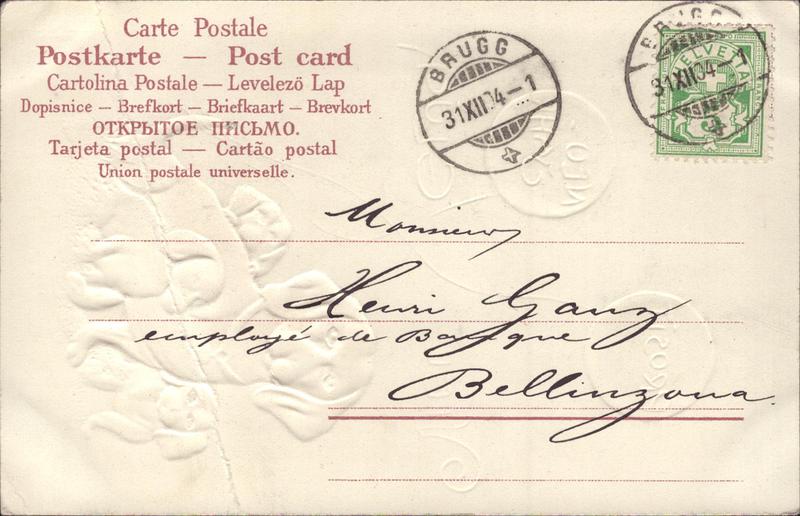 Carte Postale
Postkarte — Post card
Cartolina Postale — Levelező Lap
Dopisnice — Brefkort — Briefkaart — Brevkort
ОТКРЫТОЕ ПИСЬМО.
Tarjeta postal — Cartão postal
Union postale universelle.
BRUGG
31 XII 04 – 1
BRUGG
31 XII 04 – 1
HELVETIA
Monsieur
Henri Ganz
employé de Banque
Bellinzona.